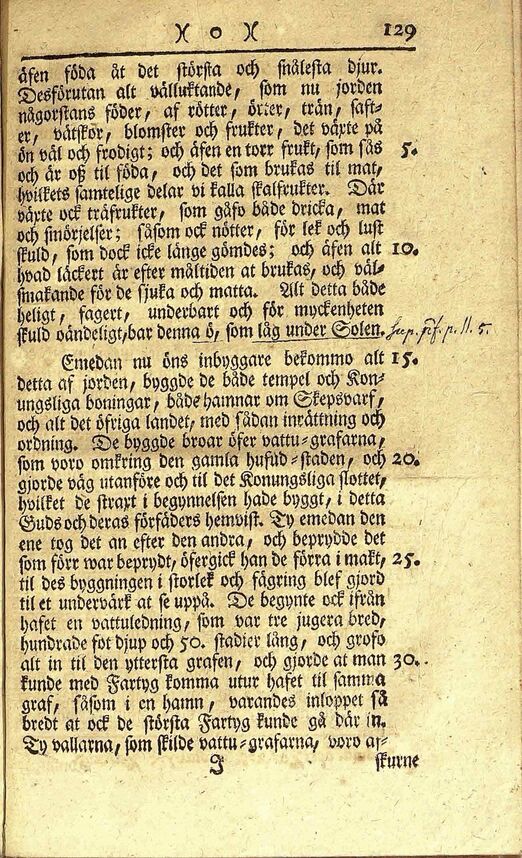 )( o )( 129
äfen föda åt det största och snålesta djur.
Desförutan alt välluktande, som nu jorden
någorstans föder, af rötter, örter, trän, saft-
er, vätskor, blomster och frukter, det växte på
ön väl och frodigt; och äfen en torr frukt, som sås 5.
och är oß til föda, och det som brukas til mat,
hvilkets samtelige delar vi kalla skalfrukter. Där
växte ock träfrukter, som gåfvo både dricka, mat
och smörjelser; såsom ock nötter, för lek och lust
skuld, som dock icke länge gömdes; och äfen alt 10.
hvad läckert är efter måltiden at brukas, och väl-
smakande för de sjuka och matta. Alt detta både
heligt, fagert, underbart och för myckenheten
skuld oändeligt, bar denna ö, som låg under Solen. p. 11. 5.
Emedan nu öns inbyggare bekommo alt 15.
detta af jorden, byggde de både tempel och Kon-
ungsliga boningar, både hamnar om Skepsvarf,
och alt det öfriga landet, med sådan inrättning och
ordning. De byggde broar öfer vattu-grafarna,
som voro omkring den gamla hufud-staden, och 20.
gjorde väg utanföre och til det Konungsliga slottet,
hvilket de straxt i begynnelsen hade byggt, i detta
Guds och deras förfäders hemvist. Ty emedan den
ene tog det an efter den andra, och beprydde det
som förr war beprydt, öfergick han de förra i makt, 25.
til des byggningen i storlek och fägring blef gjord
til et undervärk at se uppå. De begynte ock ifrån
hafet en vattuledning, som var tre jugera bred,
hundrade fot djup och 50. stadier lång, och grofo
alt in til den yttersta grafen, och gjorde at man 30.
kunde med Fartyg komma utur hafet til samma
graf, såsom i en hamn, varandes inloppet så
bredt at ock de största Fartyg kunde gå där in.
Ty vallarna, som skilde vattu-grafarna, voro af-
J skurne